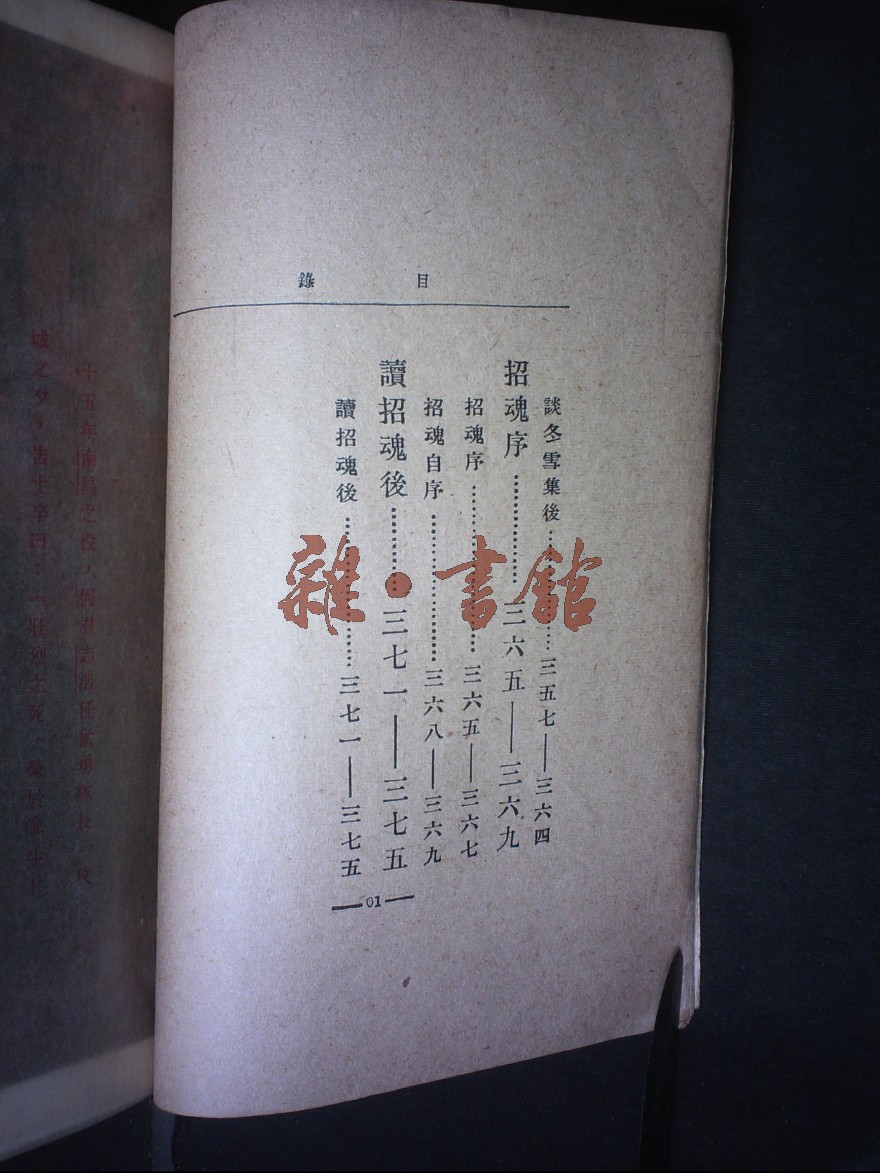 目錄
談冬雪集後……………三五七——三六四
招魂序……………三六五——三六九
招魂序……………三六五——三六七
招魂自序……………三六八——三六九
讀招魂後……………三七一——三七五
讀招魂後……………三七一——三七五
—01—
雜·書館
十五年南昌之役，何君志浩任奮勇隊長，攻
城之夕，告士卒曰：「壯烈之死，榮於偷生」